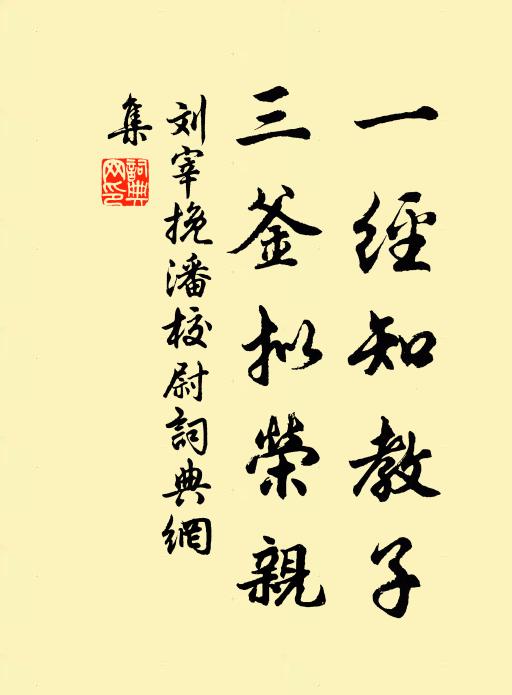 一經知教子
三釜拟榮親
刘宰挽潘校尉詞典網
集
詞典
网印